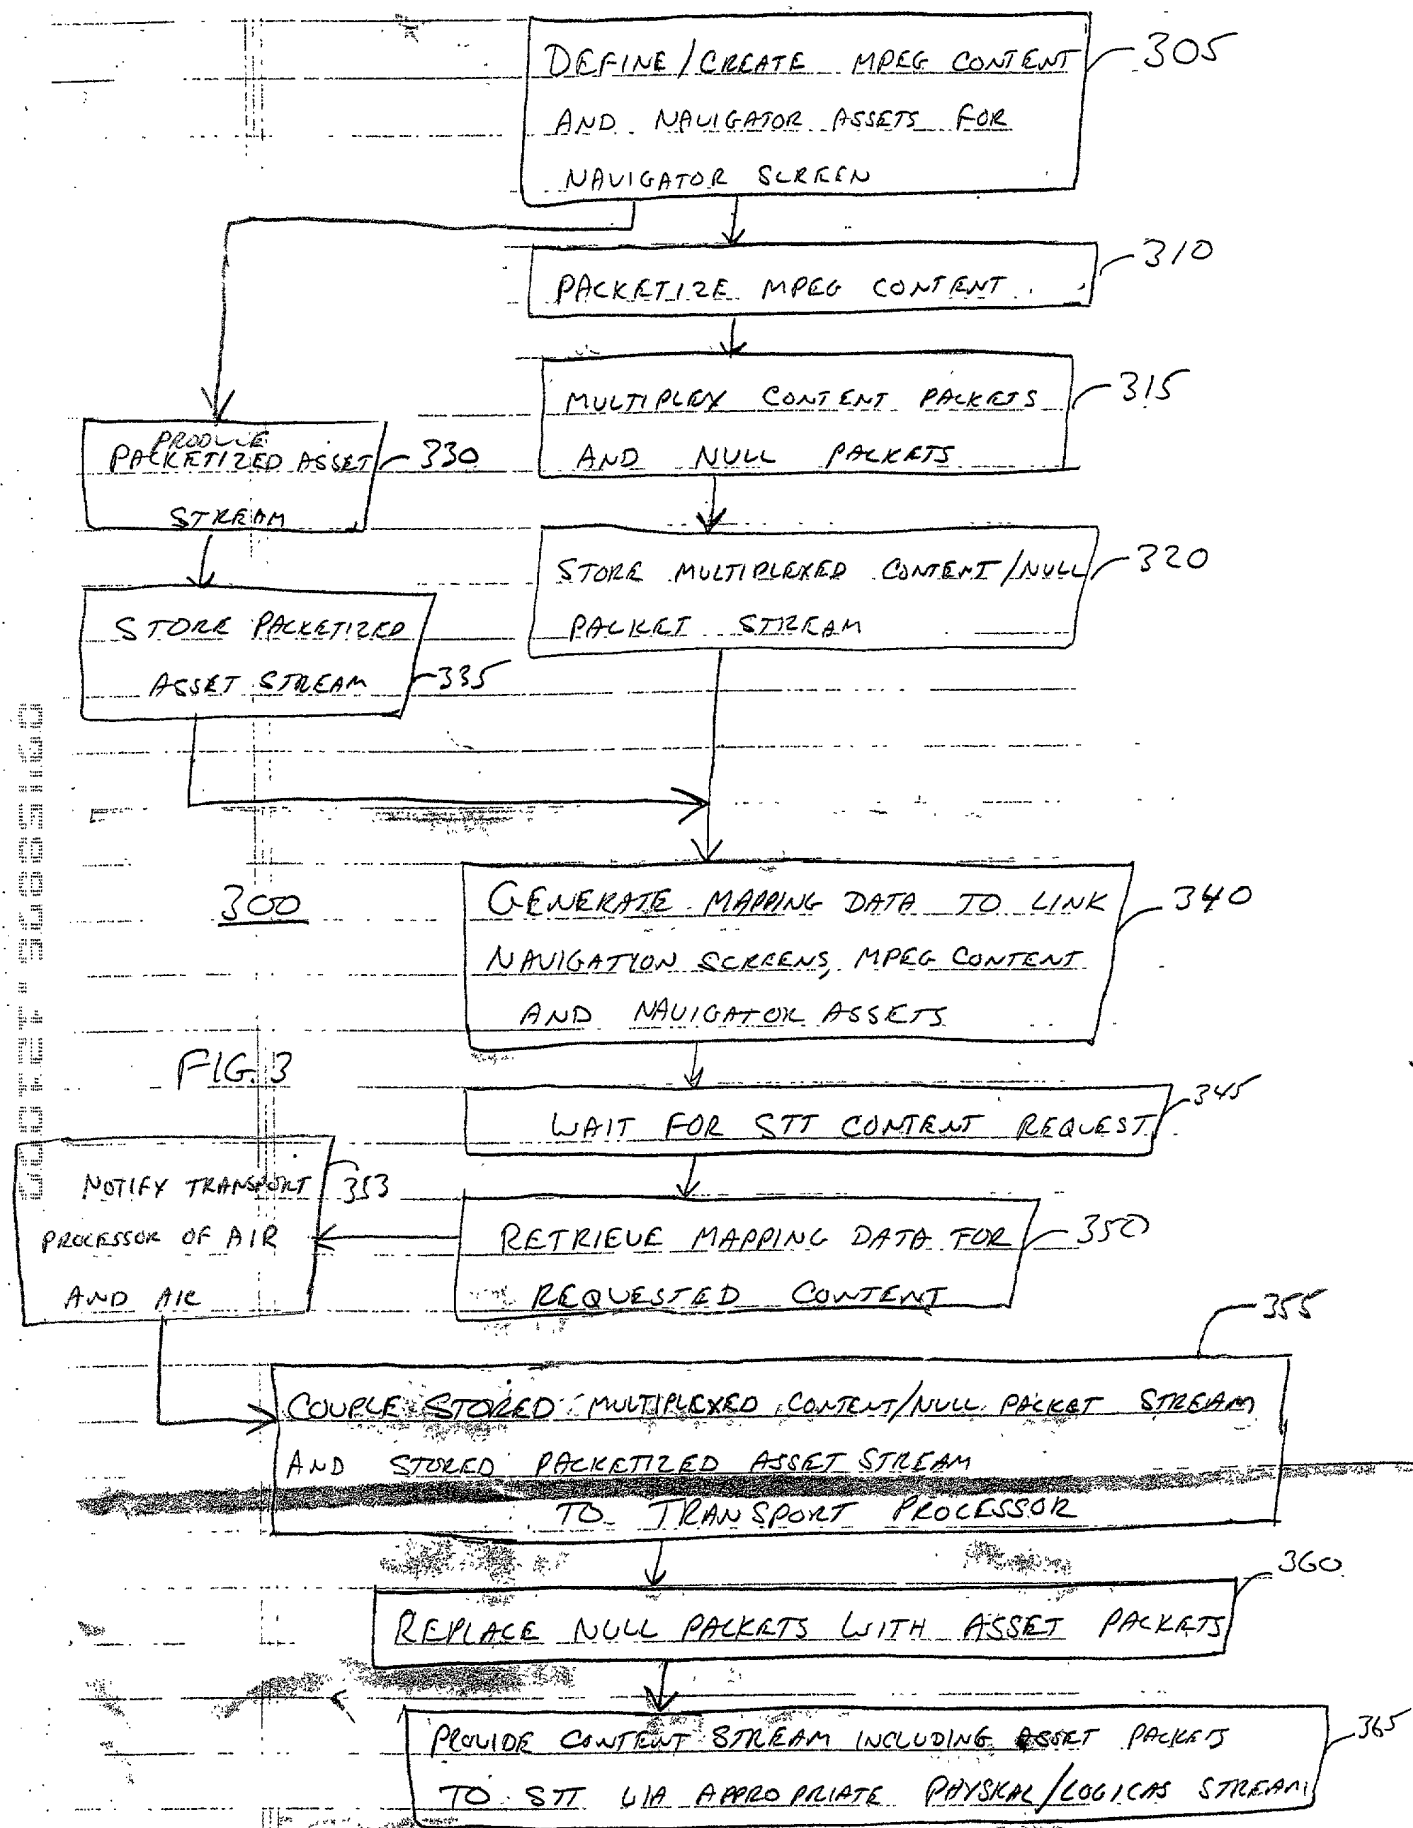 DEFINE/CREATE MPEG CONTENT
AND NAVIGATOR ASSETS FOR
NAVIGATOR SCREEN
305
PACKETIZE MPEG CONTENT
310
MULTIPLEX CONTENT PACKETS
AND NULL PACKETS
315
PRODUCE
PACKETIZED ASSET
STREAM
330
STORE MULTIPLEXED CONTENT/NULL
PACKET STREAM
320
STORE PACKETIZED
ASSET STREAM
335
300
GENERATE MAPPING DATA TO LINK
NAVIGATION SCREENS, MPEG CONTENT
AND NAVIGATOR ASSETS
340
FIG. 3
WAIT FOR STT CONTENT REQUEST
345
RETRIEVE MAPPING DATA FOR
REQUESTED CONTENT
350
NOTIFY TRANSPORT
PROCESSOR OF AIR
AND AIC
353
355
COUPLE STORED MULTIPLEXED CONTENT/NULL PACKET STREAM
AND STORED PACKETIZED ASSET STREAM
TO TRANSPORT PROCESSOR
REPLACE NULL PACKETS WITH ASSET PACKETS
360
PROVIDE CONTENT STREAM INCLUDING ASSET PACKETS
TO STT VIA APPROPRIATE PHYSICAL/LOGICAL STREAM
365